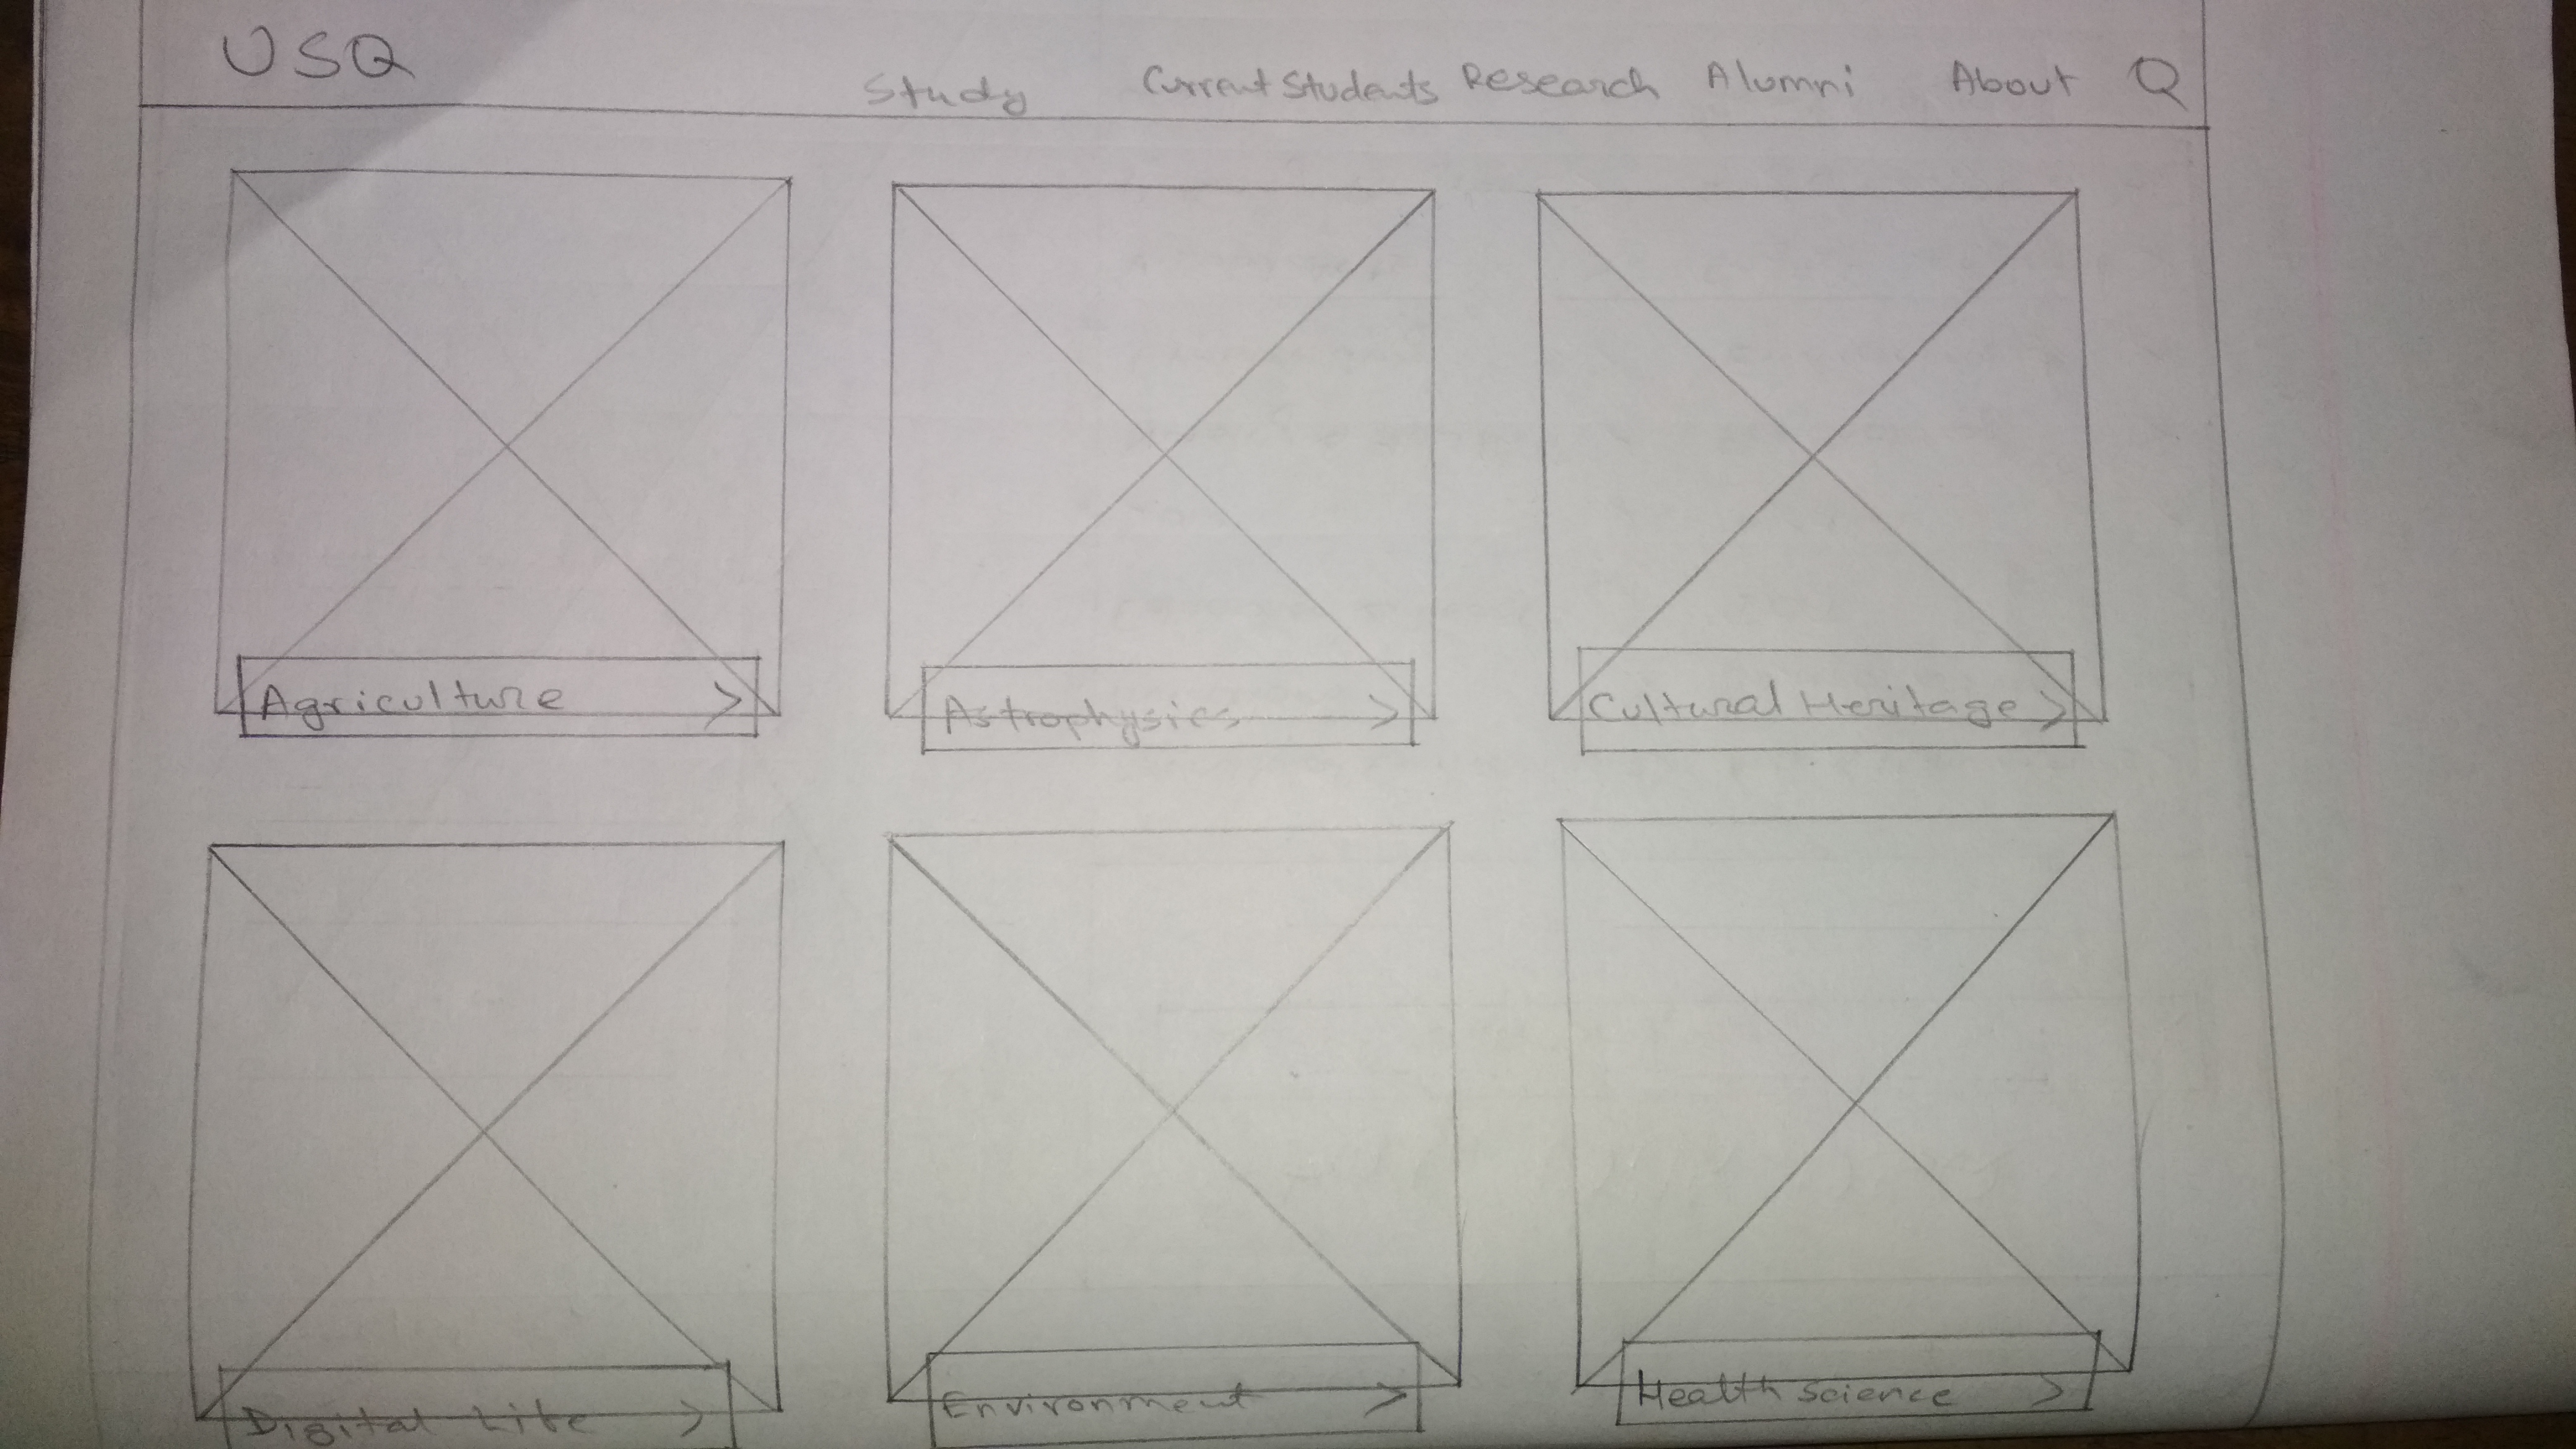 USQ
Study Current Students Research Alumni About Q
Agriculture >
Astrophysics >
Cultural Heritage >
Digital Life >
Environment >
Health Science >